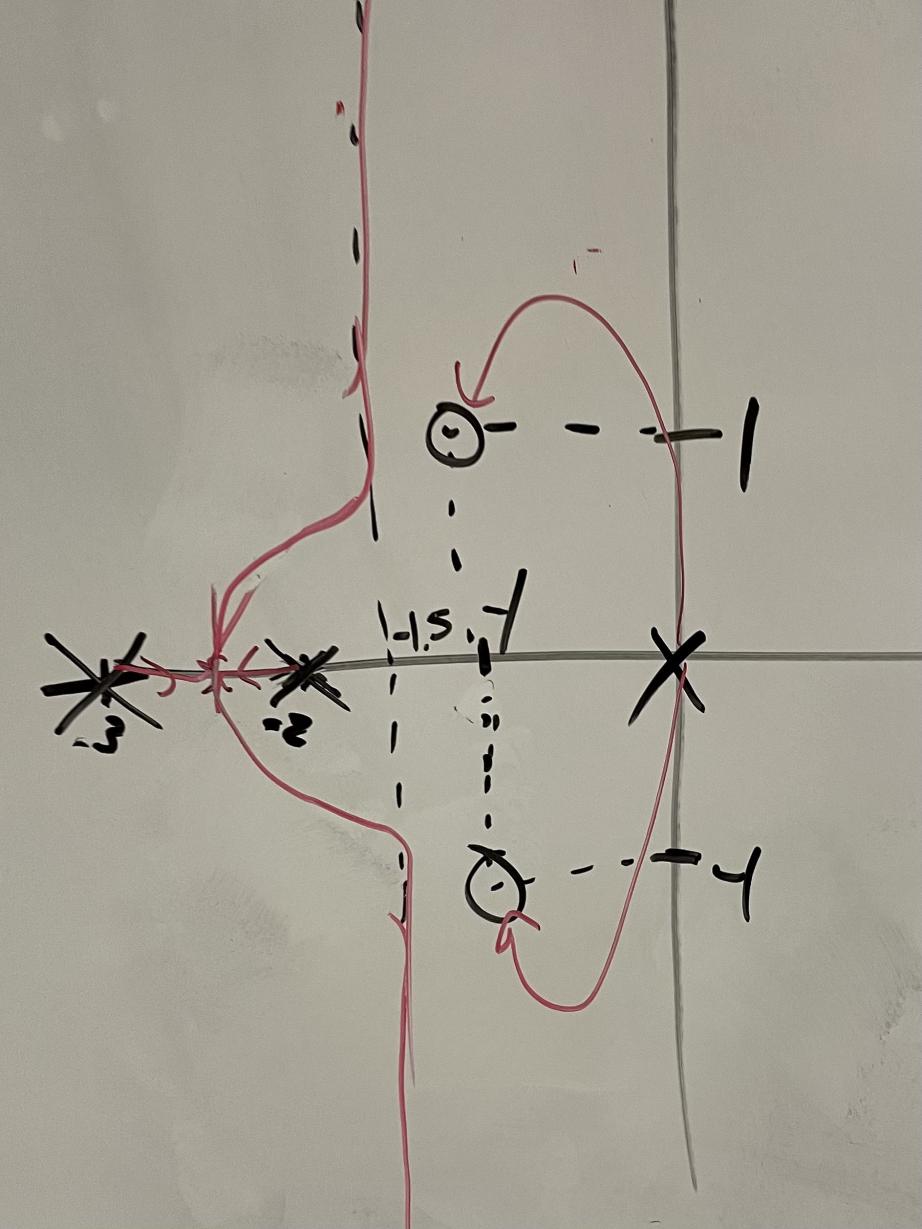 1
-1.5 -1
-3 -2
-1